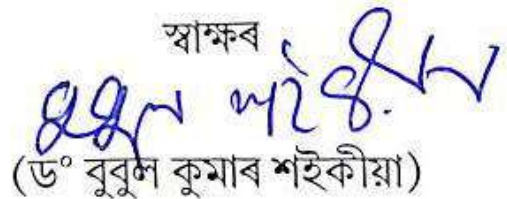 স্বাক্ষৰ
(ড° বুবুল কুমাৰ শইকীয়া)